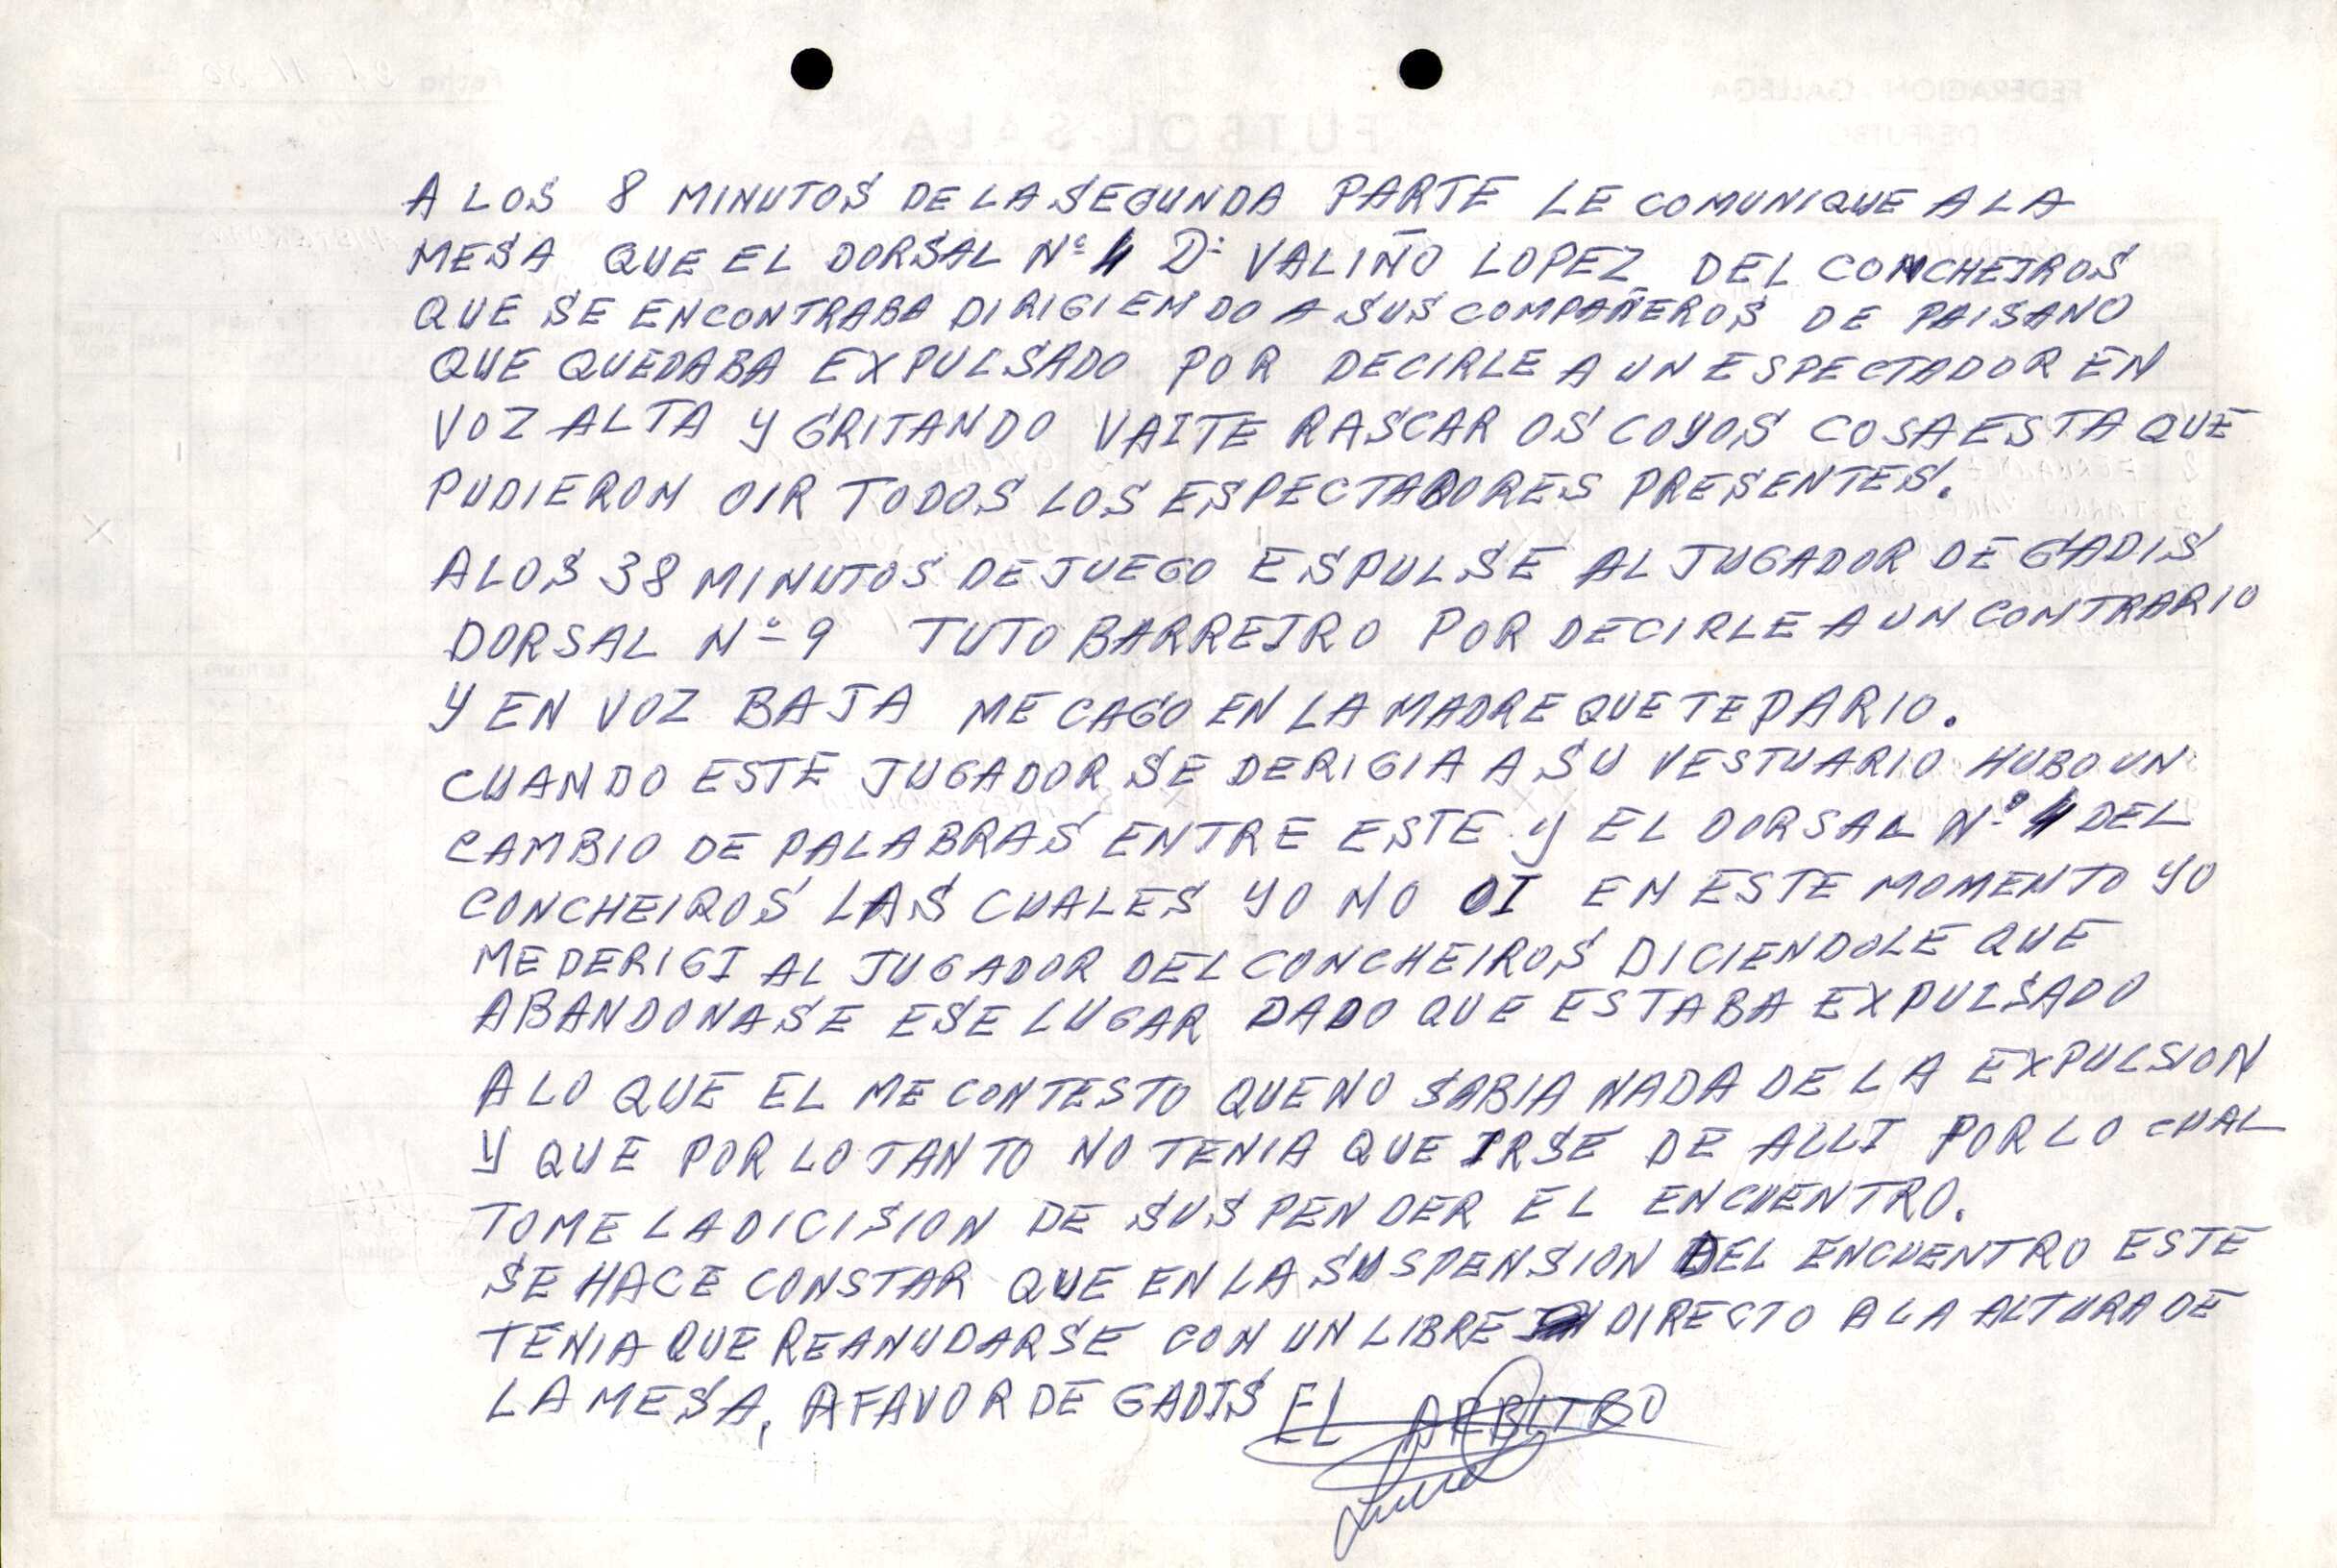 A LOS 8 MINUTOS DE LA SEGUNDA PARTE LE COMUNIQUE A LA
MESA QUE EL DORSAL Nº 4 D: VALIÑO LOPEZ DEL CONCHEIROS
QUE SE ENCONTRABA DIRIGIENDO A SUS COMPAÑEROS DE PAISANO
QUE QUEDABA EXPULSADO POR DECIRLE A UN ESPECTADOR EN
VOZ ALTA Y GRITANDO VAITE RASCAR OS COYOS COSA ESTA QUE
PUDIERON OIR TODOS LOS ESPECTADORES PRESENTES.
A LOS 38 MINUTOS DE JUEGO ESPULSE AL JUGADOR DE GADIS
DORSAL Nº 9 TUTO BARREIRO POR DECIRLE A UN CONTRARIO
Y EN VOZ BAJA ME CAGO EN LA MADRE QUE TE PARIO.
CUANDO ESTE JUGADOR SE DERIGIA A SU VESTUARIO HUBO UN
CAMBIO DE PALABRAS ENTRE ESTE Y EL DORSAL Nº 4 DEL
CONCHEIROS LAS CUALES YO NO OI EN ESTE MOMENTO YO
ME DERIGI AL JUGADOR DEL CONCHEIROS DICIENDOLE QUE
ABANDONASE ESE LUGAR DADO QUE ESTABA EXPULSADO
A LO QUE EL ME CONTESTO QUE NO SABIA NADA DE LA EXPULSION
Y QUE POR LO TANTO NO TENIA QUE IRSE DE ALLI POR LO CUAL
TOME LA DICISION DE SUSPENDER EL ENCUENTRO.
SE HACE CONSTAR QUE EN LA SUSPENSION DEL ENCUENTRO ESTE
TENIA QUE REANUDARSE CON UN LIBRE DIRECTO A LA ALTURA DE
LA MESA, A FAVOR DE GADIS EL ARBITRO